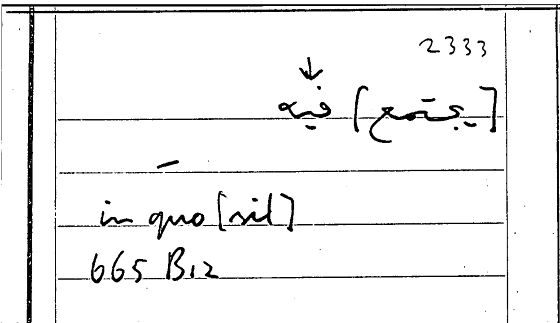 2333
↓
[يجتمع] فيه
–
in quo [sit]
665 B12